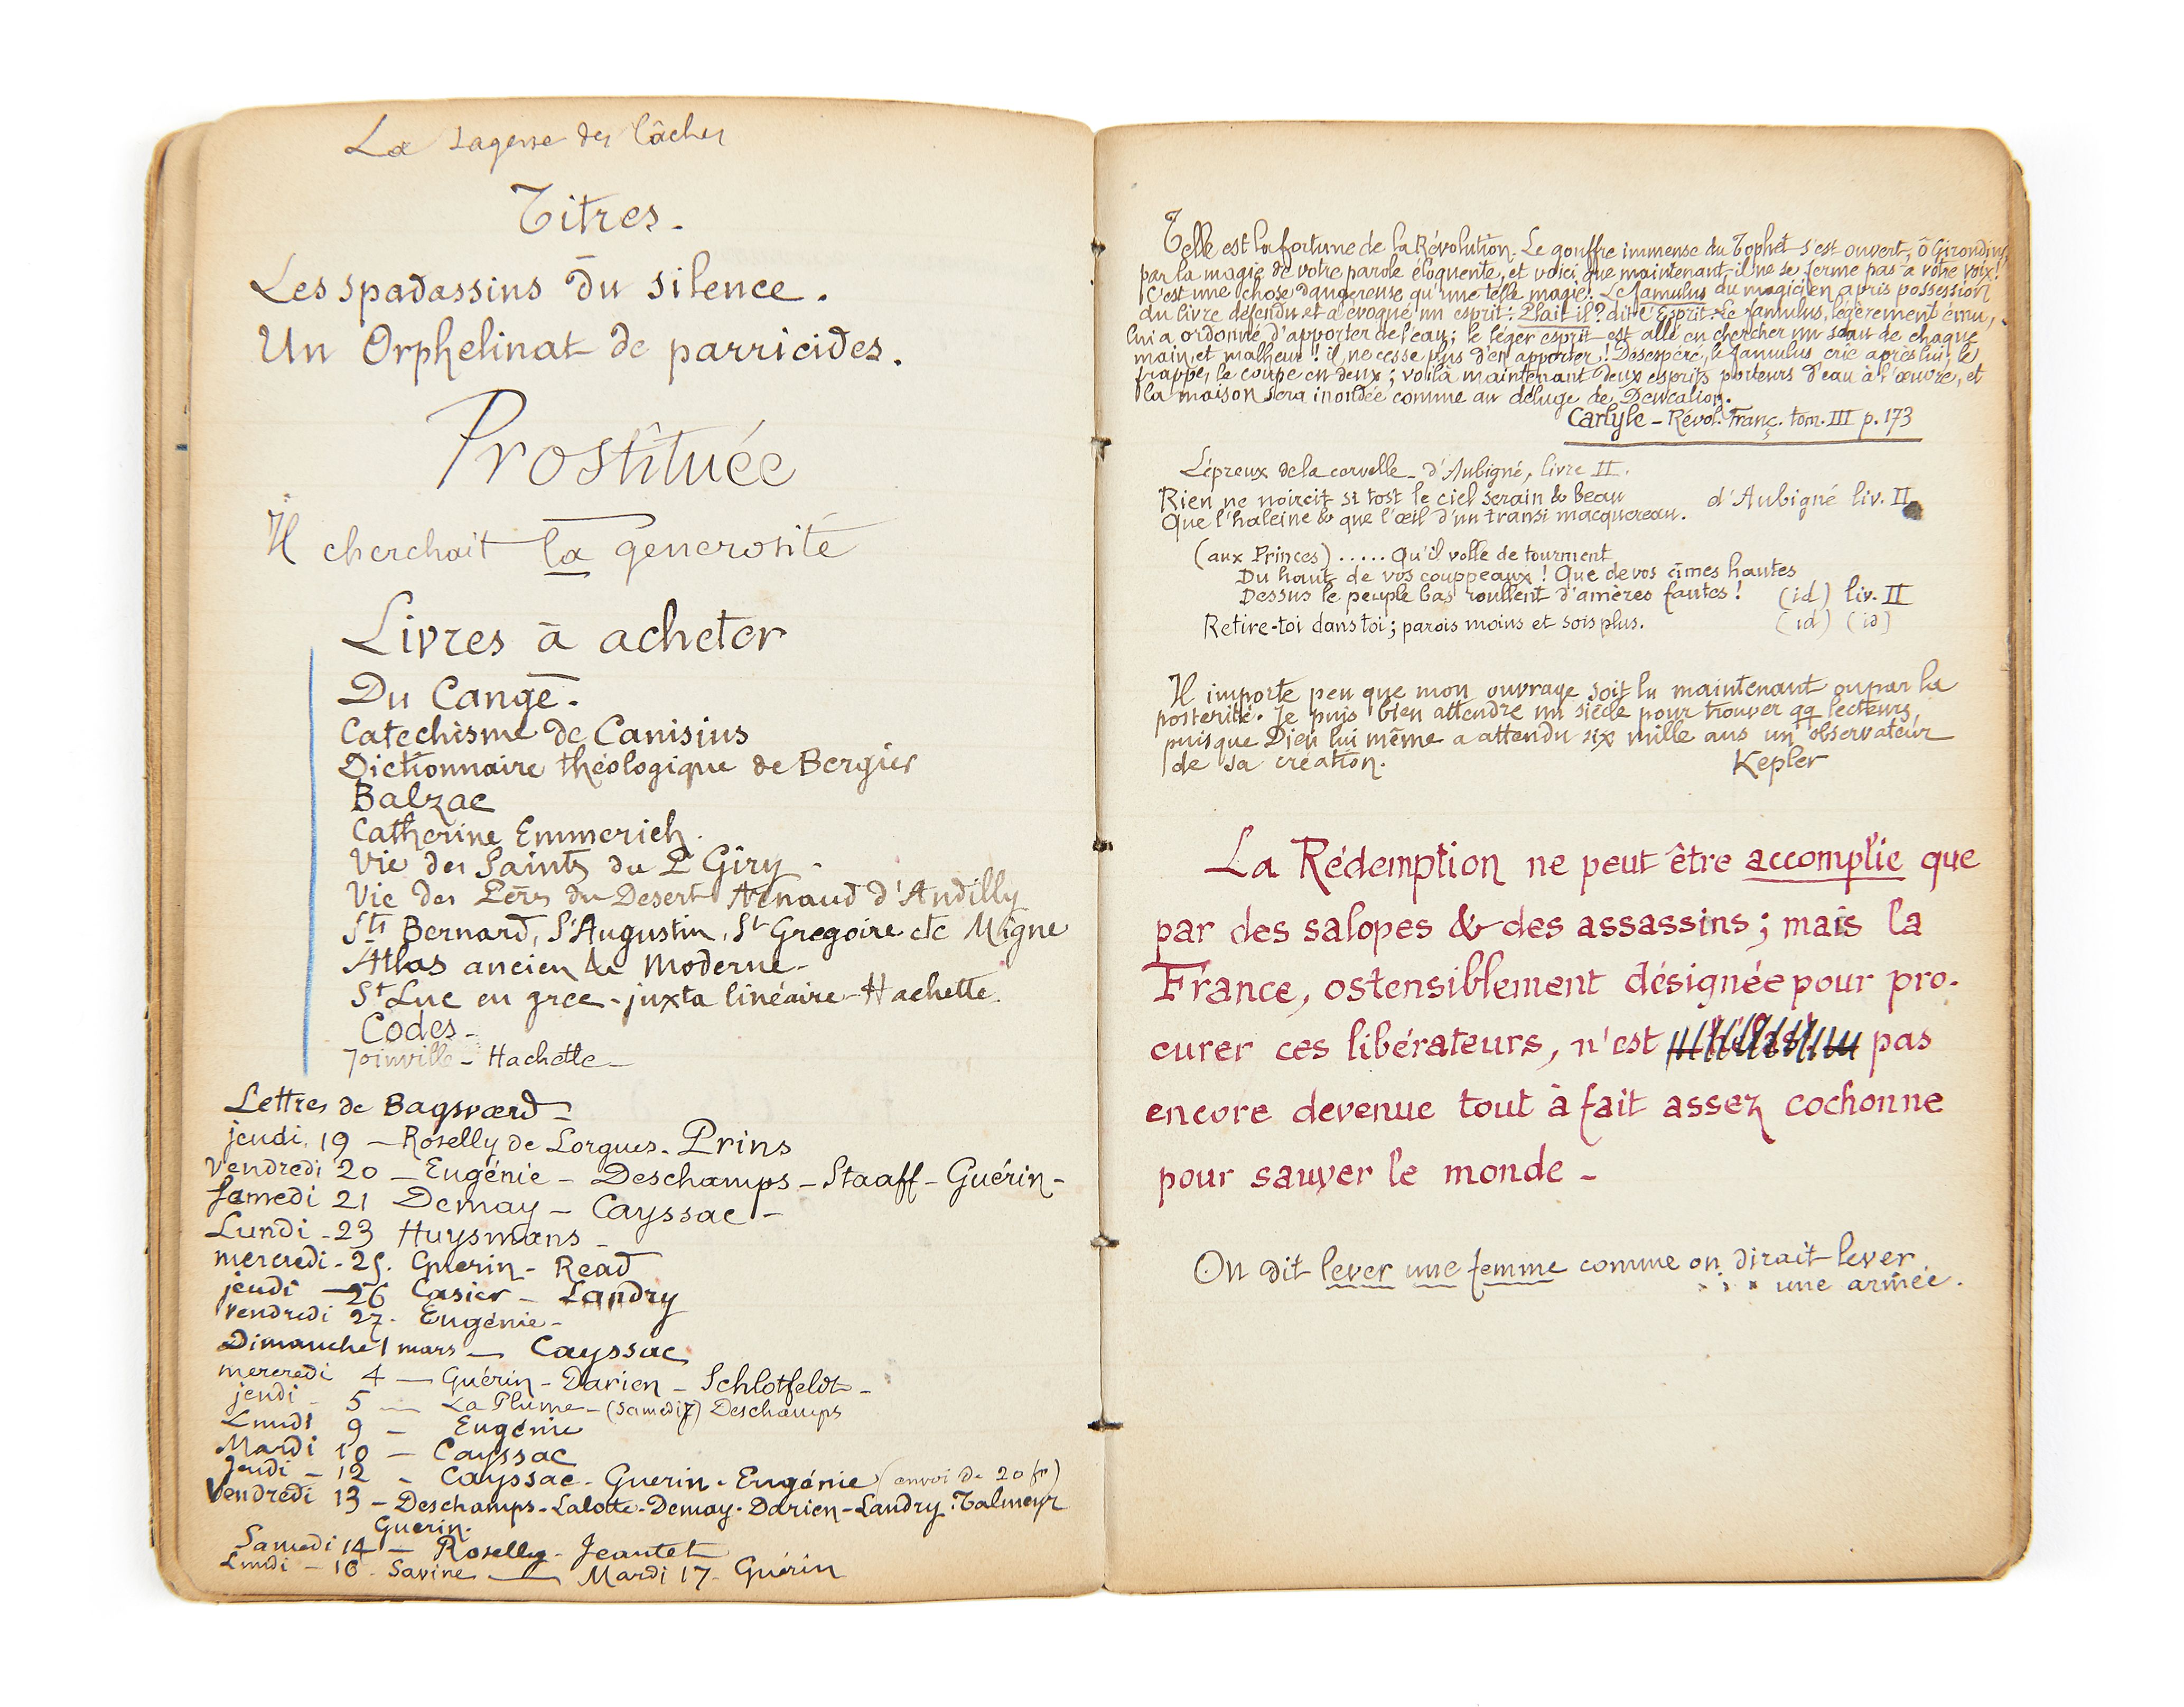 La sagesse des lâches
Titres.
Les spadassins du silence.
Un Orphelinat de parricides.
Prostituée
Il cherchait la generosité
Livres à acheter
Du Cange.
Catechisme de Canisius
Dictionnaire théologique de Bergier
Balzac
Catherine Emmerich.
Vie des Saints du P Giry -
Vie des Pères du Desert Arnaud d'Andilly
Sts Bernard, St Augustin, St Gregoire etc Migne
Atlas ancien & Moderne-
St Luc en grec - juxta linéaire - Hachette.
Codes-
Joinville - Hachette-
Lettres de Bagsvaerd-
jeudi 19 - Roselly de Lorgues. Prins
Vendredi 20 - Eugénie - Deschamps - Staaff - Guérin-
Samedi 21 Demay - Cayssac -
Lundi - 23 Huysmans -
mercredi - 25. Guerin - Read
jeudi - 26 Casier - Landry
Vendredi 27. Eugénie-
Dimanche 1 mars - Cayssac
mercredi 4 - Guérin - Darien - Schlotfeldt-
jeudi - 5 - La Plume - (Samedi 7) Deschamps
Lundi 9 - Eugénie
Mardi 10 - Cayssac
Jeudi - 12 - Cayssac - Guerin - Eugénie (envoi de 20 fr)
Vendredi 13 - Deschamps - Lalotte - Demay - Darien - Landry. Talmeyr
Guerin.
Samedi 14 - Roselly - Jeantet
Lundi - 16 - Savine - Mardi 17 - Guérin
Telle est la fortune de la Révolution. Le gouffre immense du Tophet s'est ouvert, ô Girondins,
par la magie de votre parole éloquente, et voici que maintenant, il ne se ferme pas à votre voix!
C'est une chose dangereuse qu'une telle magie! Le famulus du magicien a pris possession
du livre défendu et a évoqué un esprit: Plait il? dit l'Esprit. Le famulus, légèrement ému,
lui a ordonné d'apporter de l'eau; le léger esprit est allé en chercher un seau de chaque
main, et malheur! il ne cesse plus d'en apporter! Désespéré, le famulus crie après lui, le
frappe, le coupe en deux; voilà maintenant deux esprits porteurs d'eau à l'œuvre, et
la maison sera inondée comme au déluge de Deucalion.
Carlyle - Révol. Franç. tom. III p. 173
Lépreux de la cervelle - d'Aubigné, livre II.
Rien ne noircit si tost le ciel serain & beau d'Aubigné liv. II
Que l'haleine & que l'œil d'un transi macquereau.
(aux Princes) ..... Qu'il volle de tourment
Du haut de vos couppeaux! Que de vos cimes hautes
Dessus le peuple bas roullent d'amères fautes! (id) liv. II
Retire-toi dans toi; parois moins et sois plus. (id) (id)
Il importe peu que mon ouvrage soit lu maintenant ou par la
posterité. Je puis bien attendre un siècle pour trouver qq lecteurs,
puisque Dieu lui même a attendu six mille ans un observateur
de sa création. Kepler
La Rédemption ne peut être accomplie que
par des salopes & des assassins; mais la
France, ostensiblement désignée pour pro-
curer ces libérateurs, n'est pas
encore devenue tout à fait assez cochonne
pour sauver le monde -
On dit lever une femme comme on dirait lever
une armée.